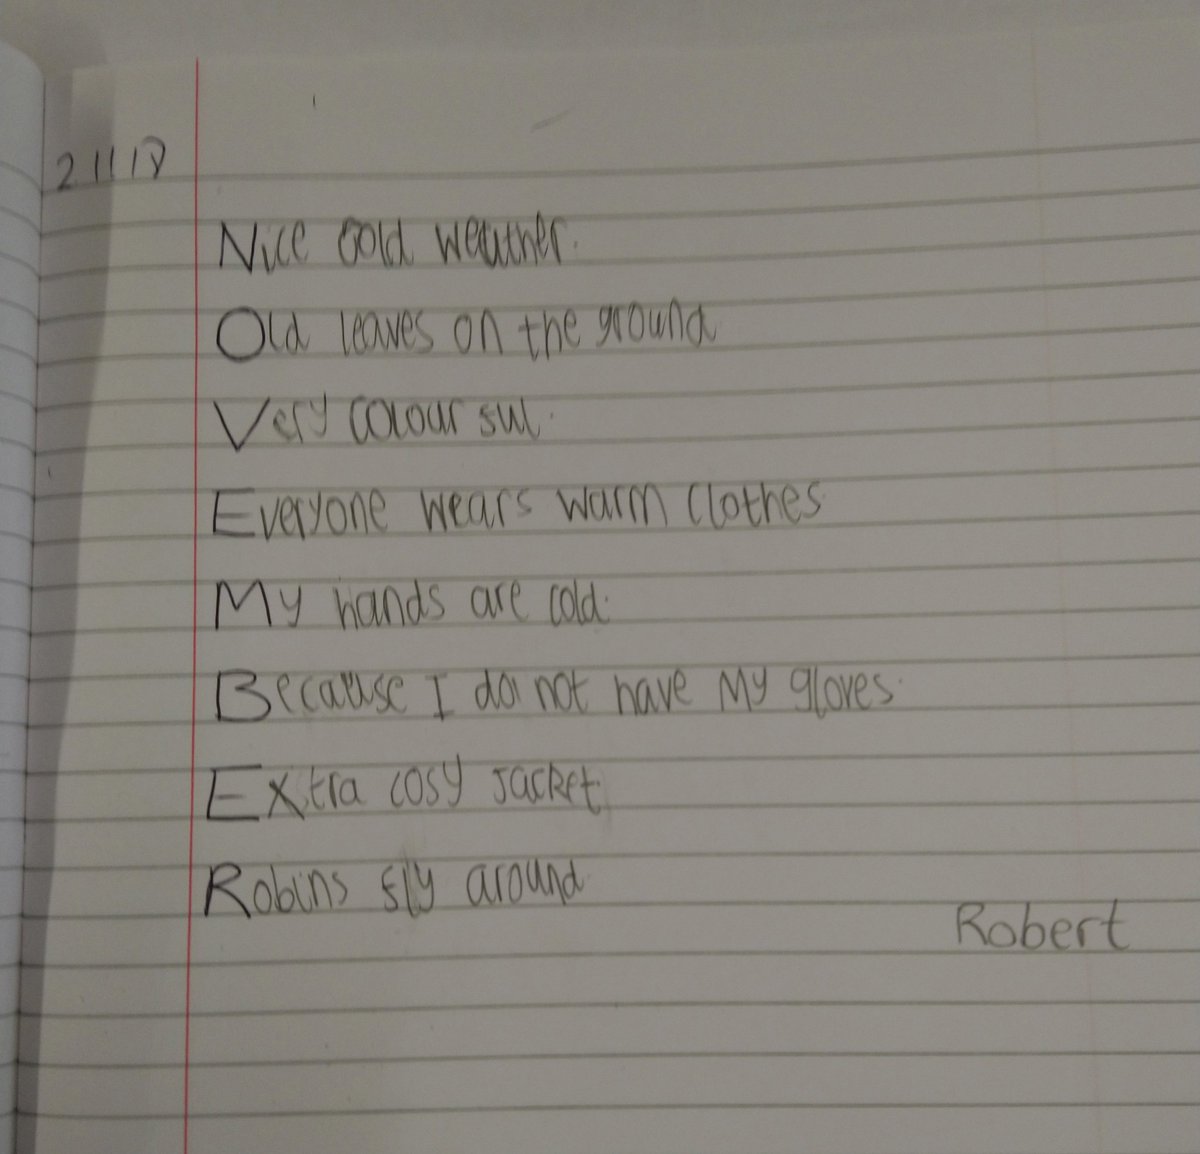 21118
Nice cold weather.
Old leaves on the ground
Very colourful.
Everyone wears warm clothes.
My hands are cold.
Because I do not have My gloves.
Extra cosy jacket.
Robins fly around.
Robert